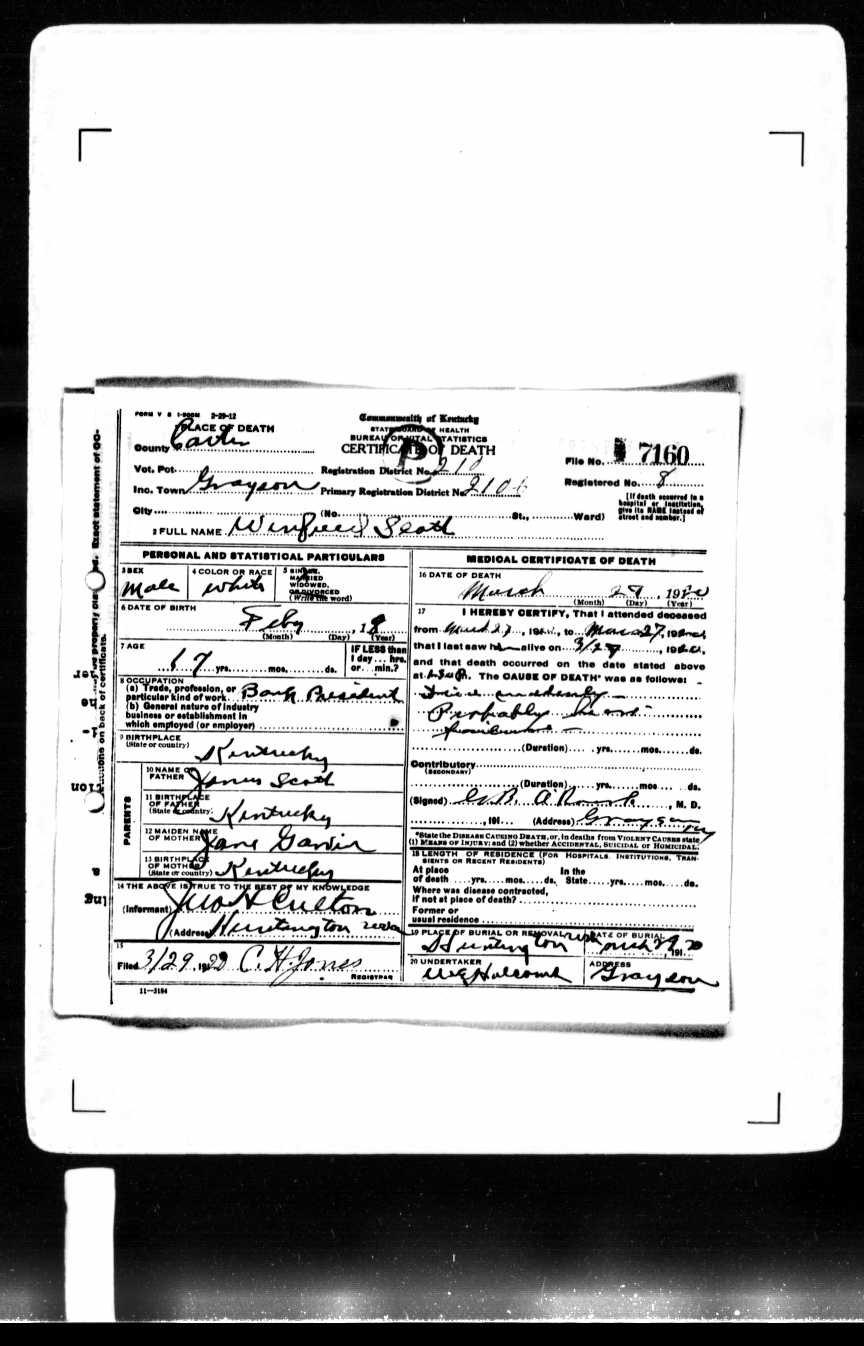 FORM V S 1-500M 2-29-12
Commonwealth of Kentucky
STATE BOARD OF HEALTH
BUREAU OF VITAL STATISTICS
CERTIFICATE OF DEATH
PLACE OF DEATH
County Carter
Vot. Pct.
Inc. Town Grayson
City (No. St., Ward)
Registration District No. 210
Primary Registration District No. 210
File No. 7160
Registered No. 8
[If death occurred in a hospital or institution, give its NAME instead of street and number.]
2 FULL NAME Winfield Scott
PERSONAL AND STATISTICAL PARTICULARS
3 SEX Male
4 COLOR OR RACE White
5 SINGLE, MARRIED WIDOWED, OR DIVORCED (Write the word)
6 DATE OF BIRTH Feby , 18
(Month) (Day) (Year)
7 AGE 67 yrs. mos. ds.
IF LESS than 1 day hrs. or min.?
8 OCCUPATION
(a) Trade, profession, or particular kind of work Bank President
(b) General nature of industry
business or establishment in
which employed (or employer)
9 BIRTHPLACE
(State or country) Kentucky
PARENTS
10 NAME OF FATHER James Scott
11 BIRTHPLACE OF FATHER (State or country) Kentucky
12 MAIDEN NAME OF MOTHER Jane
13 BIRTHPLACE OF MOTHER (State or country) Kentucky
14 THE ABOVE IS TRUE TO THE BEST OF MY KNOWLEDGE
(Informant) Jno H Culton
(Address) Huntington
15
Filed 3/29, 1920 C. H. Jones
REGISTRAR
11-3184
MEDICAL CERTIFICATE OF DEATH
16 DATE OF DEATH
March 27, 1920
(Month) (Day) (Year)
17 I HEREBY CERTIFY, That I attended deceased
from March 27, 191 , to March 27, 19
that I last saw h alive on 3/27, 19
and that death occurred on the date stated above
at The CAUSE OF DEATH* was as follows:
Died suddenly
Probably heart
failure
(Duration) yrs. mos. ds.
Contributory
(SECONDARY)
(Duration) yrs. mos. ds.
(Signed) G. B. , M. D.
, 191 (Address) Grayson Ky
*State the DISEASE CAUSING DEATH, or, in deaths from VIOLENT CAUSES state
(1) MEANS OF INJURY; and (2) whether ACCIDENTAL, SUICIDAL or HOMICIDAL.
18 LENGTH OF RESIDENCE (FOR HOSPITALS, INSTITUTIONS, TRANSIENTS OR RECENT RESIDENTS)
At place of death yrs. mos. ds. In the State yrs. mos. ds.
Where was disease contracted,
if not at place of death?
Former or
usual residence
19 PLACE OF BURIAL OR REMOVAL Huntington
DATE OF BURIAL March 29 20, 191
20 UNDERTAKER Holcomb
ADDRESS Grayson